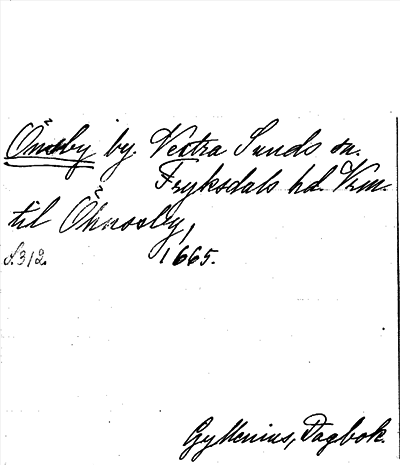 Ömsby by. Vestra Sunds sn.
Fryksdals hd. Vrm.
til Öhnosby,
s. 312. 1665.
Gyllenius, Dagbok.